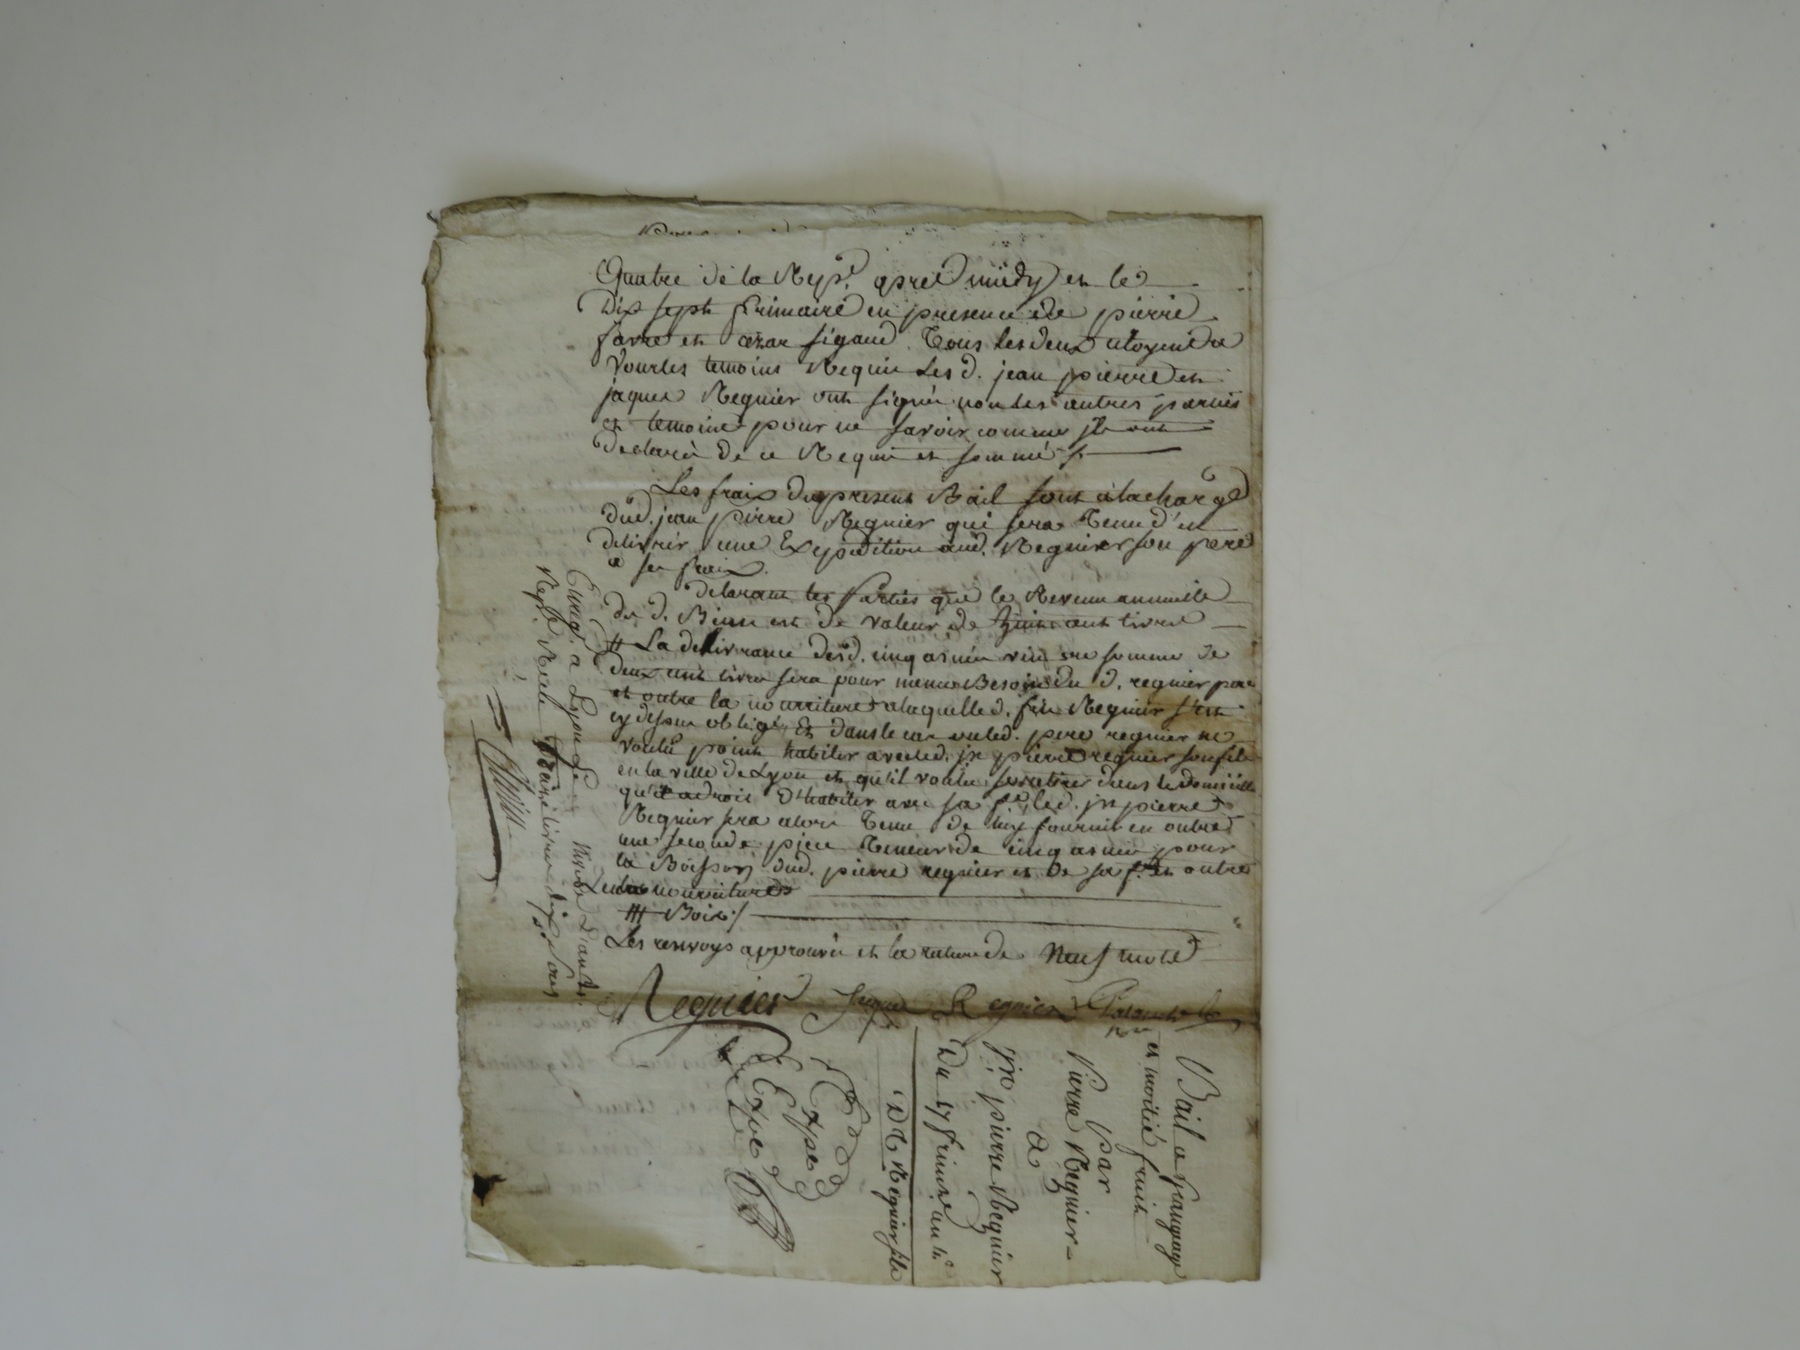 Quatre de la Rep.e apres midy et le
Dix sept frimaire en presence de pierre
favre et cezar sigaud tous les deux citoyens de
Vourles temoins Requis les d. jean pierre et
jaques Regnier ont signé non les autres parties
et temoins pour ne savoir comme ils ont
declaré de ce Requis et sommés
Les frais du present Bail sont a la charge
dud. jean pierre Regnier qui sera tenu d'en
delivrer une Expedition aud. Regnier son pere
a ses frais.
declarant les parties que le Revenu annuelle
des d. Biens est de valeur de cent livres
# La delivrance desd. cinq asnées vin et somme de
deux cent livres sera pour menus Besoins du d. regnier pere
et outre la nourriture a laquelle d. fils Regnier s'est
cy dessus obligé, Et dans le cas ou led. pere regnier ne
voulu point habiter avec led. jn pierre regnier son fils
en la ville de Lyon et qu'il voulu se retirer dans le domicille
qu'il a droit d'habiter avec sa f.e, led. jn pierre
Regnier sera alors tenu de luy fournir en outre
une seconde piece teneur de cinq asnées pour
la Boisson dud. pierre regnier et de sa f.e et outre
la nourriture
## Bois /
Les renvoys approuvés et la rature de Neuf mots
Regnier jaque Regnier
Enreg. a Lyon le nivose L'an 4.
Rep.e Reçu treize livres dix sous
Bail a
et moitié fruits
par
Pierre Regnier
a
jn pierre Regnier
Du 17 frimaire an 4e
D t Regnier fils
Exped